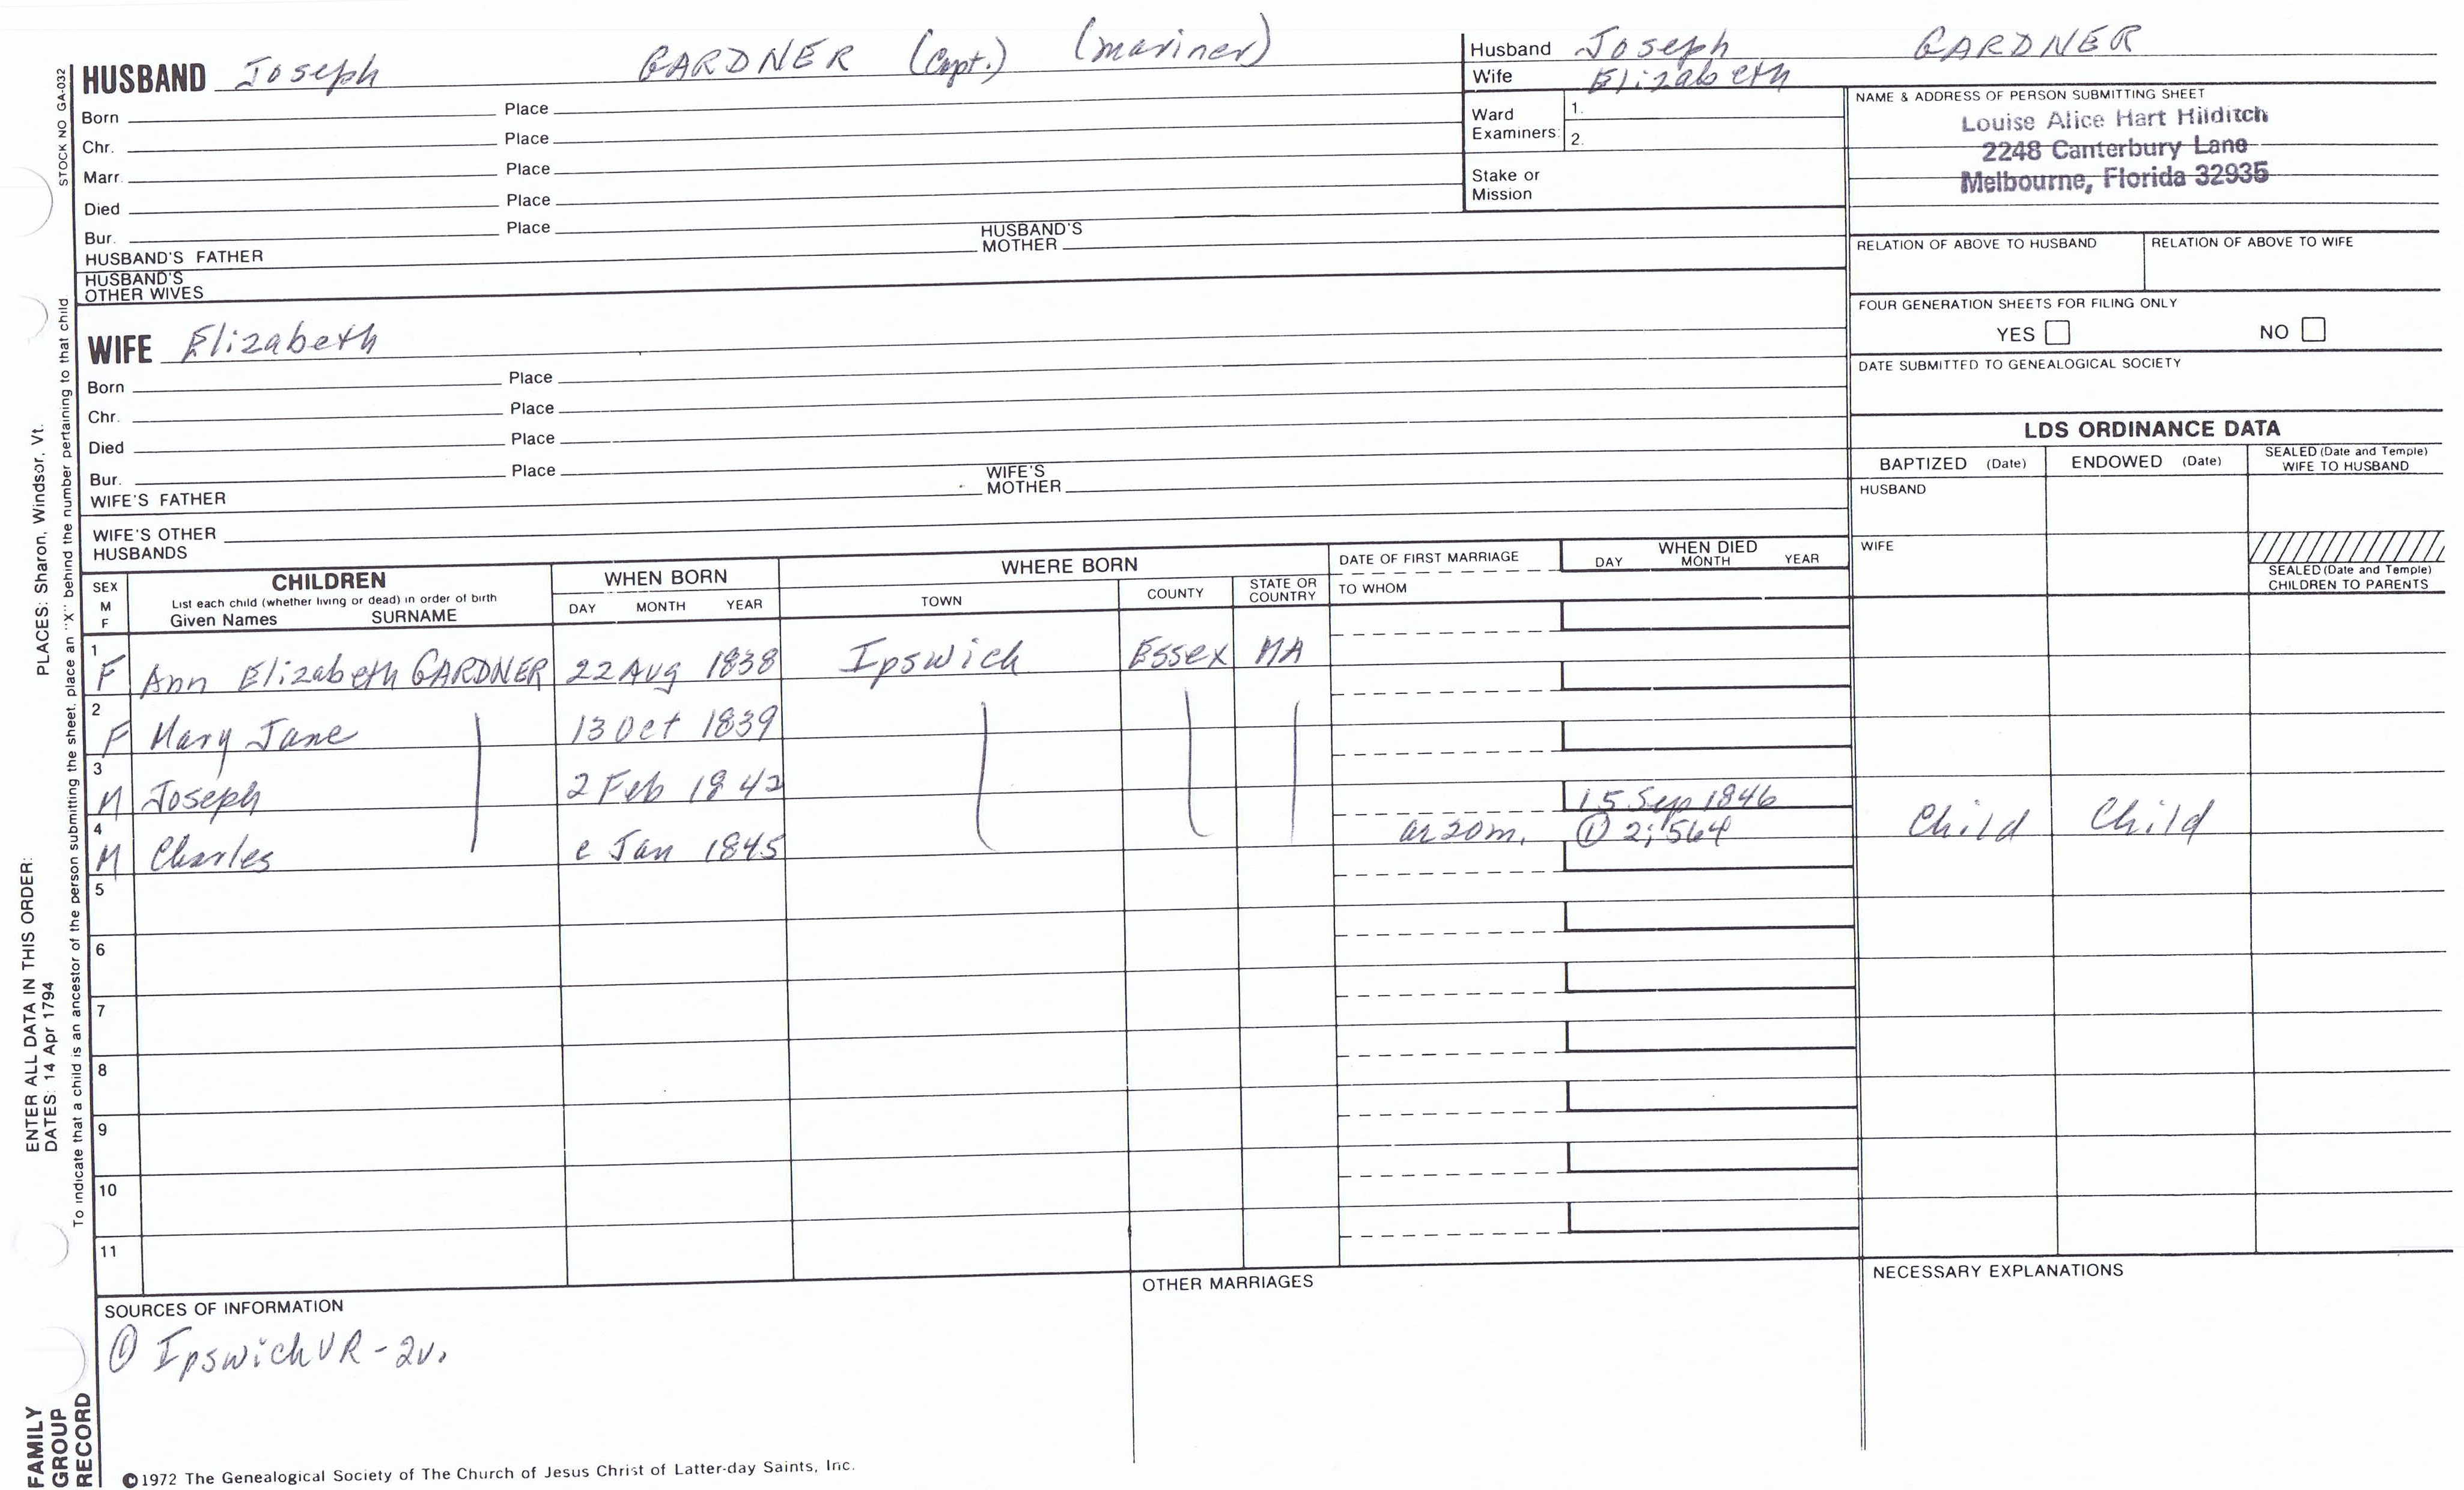 HUSBAND Joseph GARDNER (Capt.) (mariner)
Born Place
Chr. Place
Marr. Place
Died Place
Bur. Place
HUSBAND'S FATHER HUSBAND'S MOTHER
HUSBAND'S OTHER WIVES
WIFE Elizabeth
Born Place
Chr. Place
Died Place
Bur. Place
WIFE'S FATHER WIFE'S MOTHER
WIFE'S OTHER HUSBANDS
Husband Joseph GARDNER
Wife Elizabeth
Ward Examiners: 1.
2.
Stake or Mission
NAME & ADDRESS OF PERSON SUBMITTING SHEET
Louise Alice Hart Hilditch
2248 Canterbury Lane
Melbourne, Florida 32935
RELATION OF ABOVE TO HUSBAND RELATION OF ABOVE TO WIFE
FOUR GENERATION SHEETS FOR FILING ONLY
YES NO
DATE SUBMITTED TO GENEALOGICAL SOCIETY
LDS ORDINANCE DATA
BAPTIZED (Date) ENDOWED (Date) SEALED (Date and Temple) WIFE TO HUSBAND
HUSBAND
WIFE
SEALED (Date and Temple) CHILDREN TO PARENTS
SEX M F
CHILDREN
List each child (whether living or dead) in order of birth
Given Names SURNAME
WHEN BORN
DAY MONTH YEAR
WHERE BORN
TOWN COUNTY STATE OR COUNTRY
DATE OF FIRST MARRIAGE
TO WHOM
WHEN DIED
DAY MONTH YEAR
1 F Ann Elizabeth GARDNER 22 Aug 1838 Ipswich Essex MA
2 F Mary Jane 13 Oct 1839
3 M Joseph 2 Feb 1842
15 Sep 1846
4 M Charles c Jan 1845 ae 20m. ① 2;564 Child Child
5
6
7
8
9
10
11
SOURCES OF INFORMATION
① Ipswich VR - 2v.
OTHER MARRIAGES
NECESSARY EXPLANATIONS
©1972 The Genealogical Society of The Church of Jesus Christ of Latter-day Saints, Inc.
STOCK NO GA-032
To indicate that a child is an ancestor of the person submitting the sheet, place an "X" behind the number pertaining to that child
ENTER ALL DATA IN THIS ORDER:
DATES: 14 Apr 1794 PLACES: Sharon, Windsor, Vt.
FAMILY
GROUP
RECORD